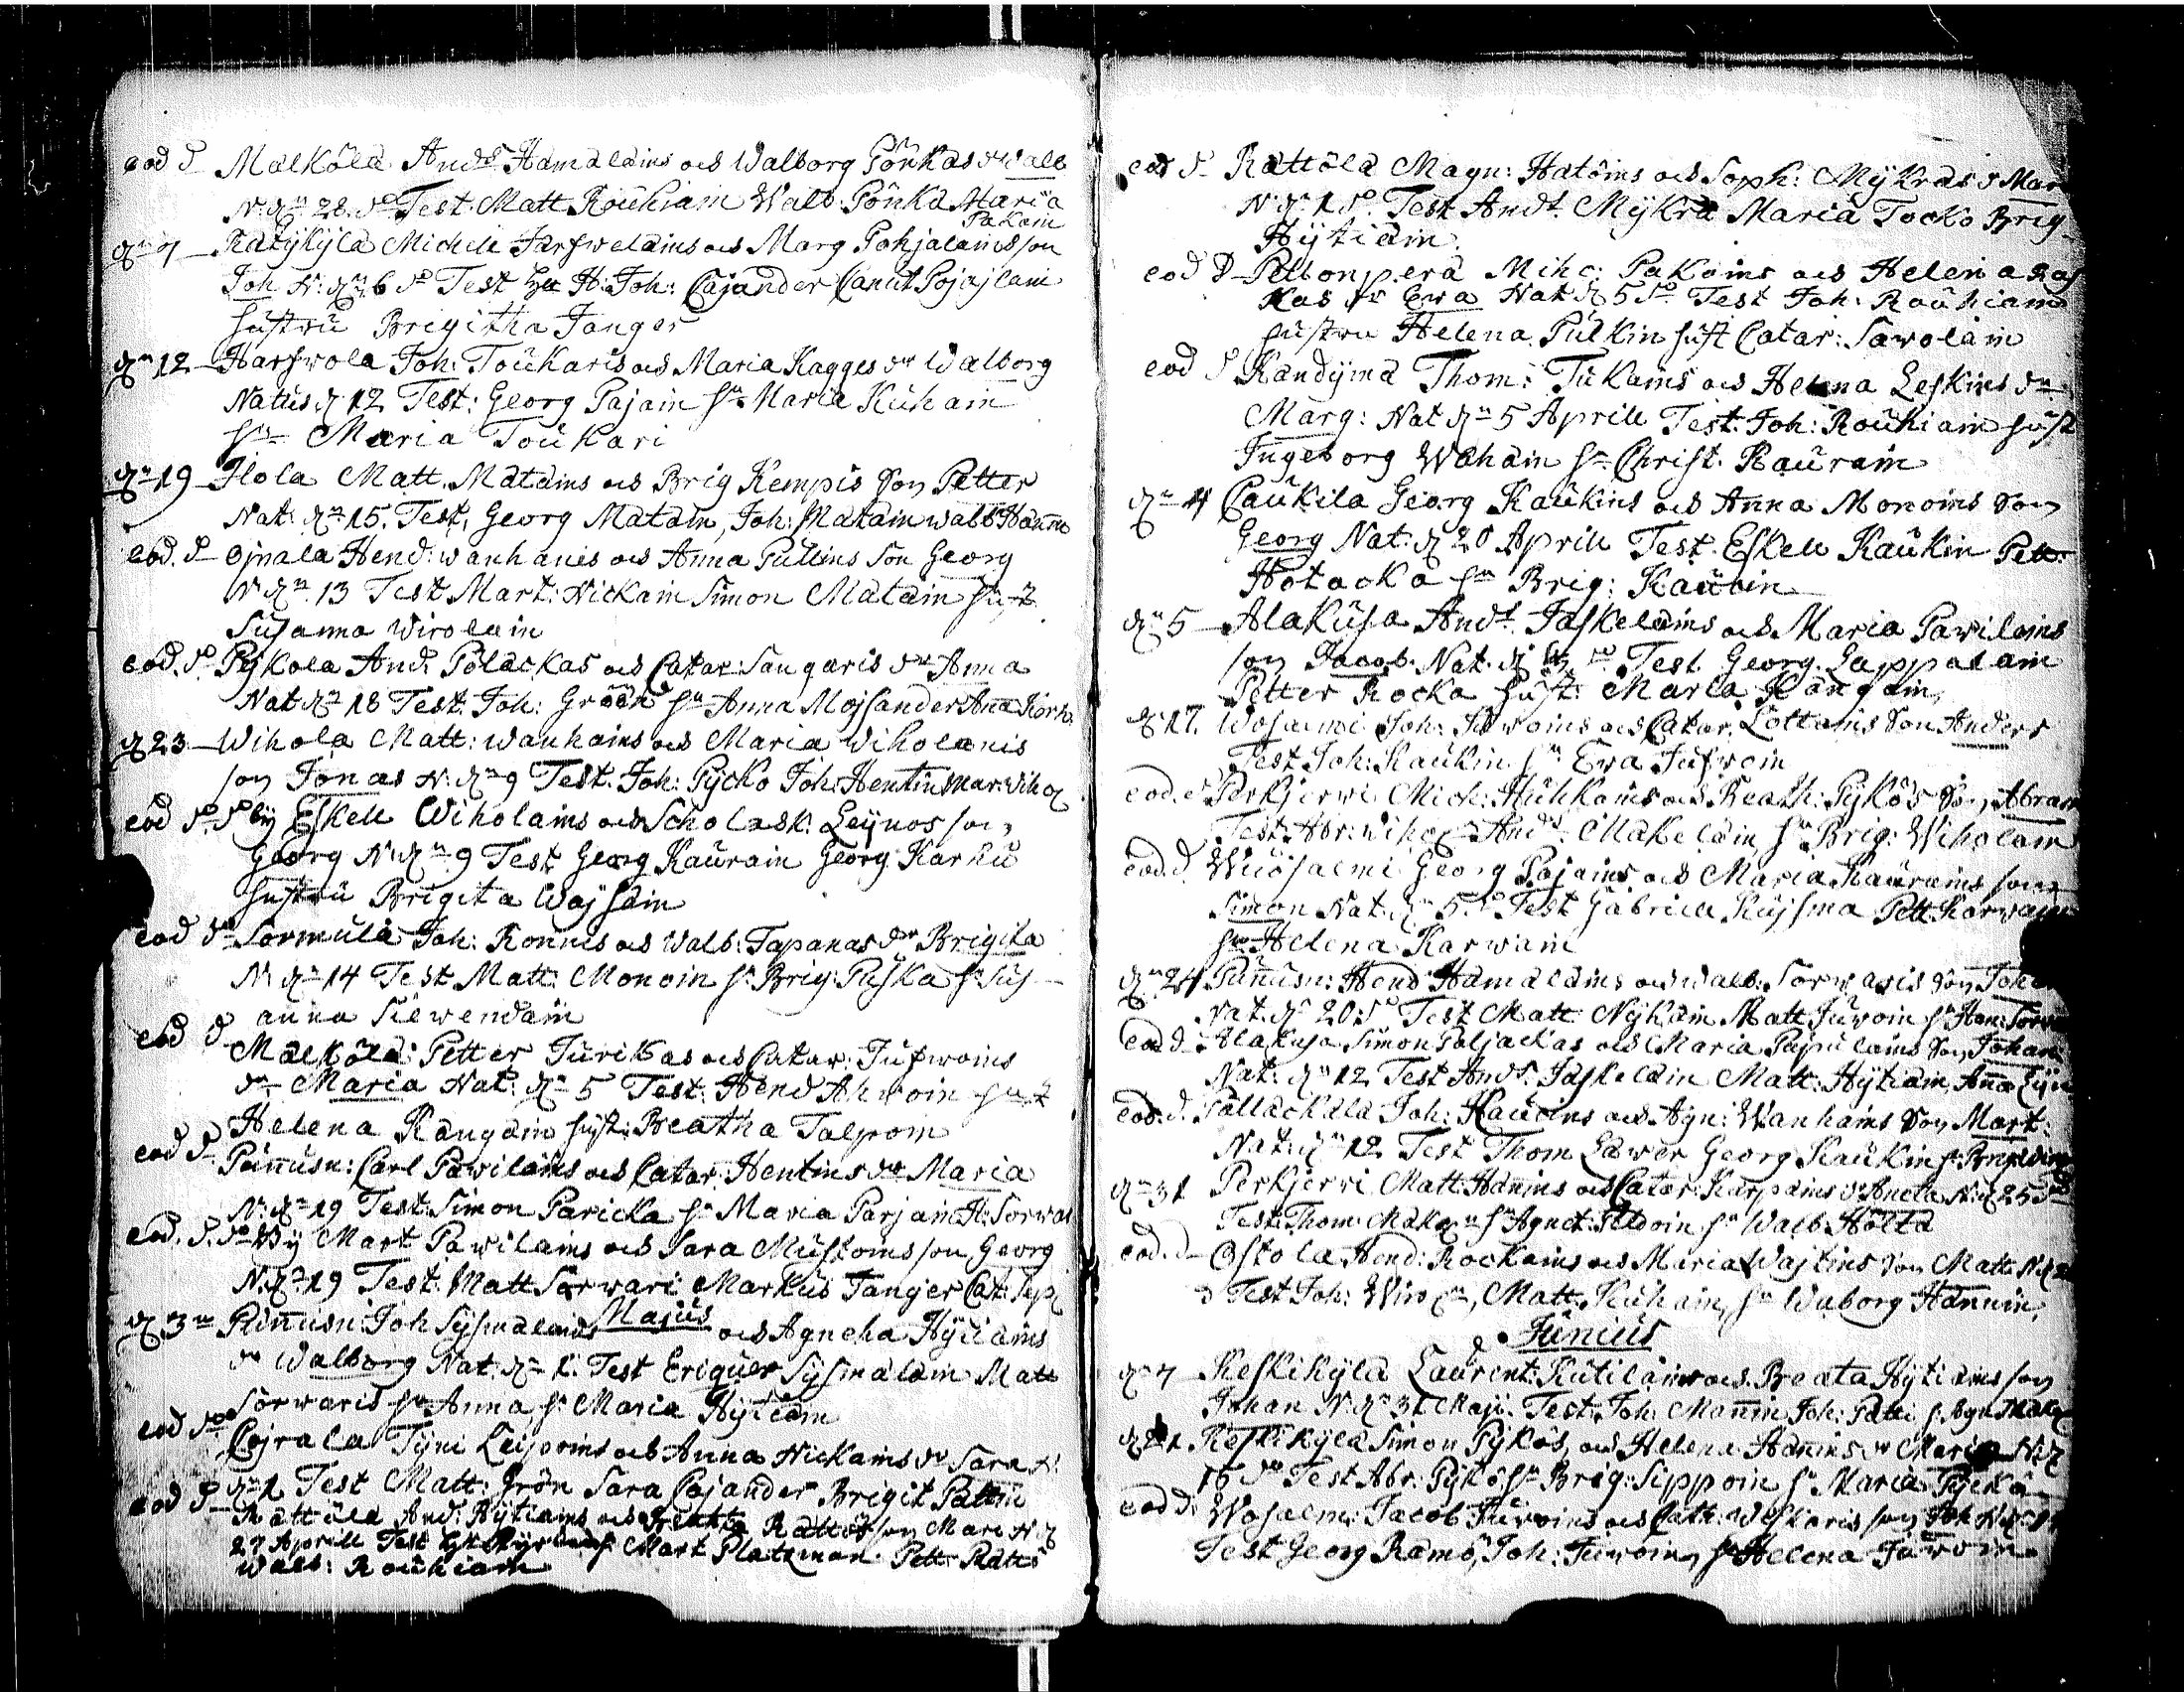 eod d Mälkölä And: Hämäläins och Walborg Pönkäs dr Walb
N: dn 28. do Test. Matt Rouhiain Walb: Pönkä Maria
Pakain
dn 7 Kätykylä Michell Järfweläins och Marg Pohjalains son
Joh N: dn 6 do Test H: Joh: Cajander Canut Pojajlain
hustru Brigitha Janger
dn 12 Harfwola Joh: Toukaris och Maria Kagges dr Walborg
Natus d 12 Test: Georg Pajain hu Maria Kuhain
hu Maria Toukari
dn 19 Ilola Matt. Matains och Brig Kempis Son Petter
Nat: dn 15. Test, Georg Matain, Joh: Matain walb: Hänn
eod. d Ojnala Hend: wanhanes och Anna Pullins Son Georg
N dn 13 Test Mart: Nickain Simon Matain hust
Susanna Wirolain
eod. do Pykola And: Pöläckäs och Catar: Sangaris dr Anna
Nat dn 18 Test. Joh: Gröön hu Anna Mojsander Anna Körh
d 23 Wihola Matt: wanhains och Maria Wiholanis
son Jonas N: dn 9 Test. Joh: Pycko Joh: Hentin Mar: Wihol
eod do do by Eskell Wiholains och Scholask: Leynos son
Georg N: dn 9 Test Georg Kaurain Georg Karhu
hustru Brigita Wajsäin
eod do Sormula Joh: Ronnis och Walb: Tapanas dr Brigita
N: dn 14 Test Matt: Monoin hu Brig: Puska hu Sus
anna Siewenäin
eod d Mälkölä: Petter Jurikas och Catar: Jufwoins
dr Maria Nat: dn 5 Test: Hend Ahwoin hust
Helena Kangain hust: Beatha Talpoin
eod d Punnusn: Carl Pawilains och Catar: Hentins dr Maria
N: dn 19 Test Simon Paricka hu Maria Parjain H: Sorwar
eod. d. do By Mart Pawilains och Sara Mustoins son Georg
N: dn 19 Test: Matt Sorwari Markus Tanger Cat: Sep
Majus
d 3n Punnusn: Joh Sysmäläins och Agneha Hytiäins
dr Walborg Nat. dn 1. Test Eriquer Sysmäläin Matt
Sorwaris hu Anna, hu Maria Hytiäin
eod do Cojrala Tyni Leipoins och Anna Nickains dr Sara N:
dn 1 Test Matt: Grön Sara Cajander Brigit Pättin
eod d Rättölä And: Hytiäins och Beatha Rättös son Mart N: d
27 Aprill Test Mart Platzman Pett: Rättö
Walb: Rouhiain
eod d Rättölä Magn: Hatoins och Soph: Mykräs d Mar
N: dn 1 do. Test And: Mykrä Maria Tocko Brig
Hytiäin
eod d Peltonperä Mihc: Pakoins och Helena
kas dr Ewa Nat d 5 do Test Joh: Rouhiain
hustru Helena Pulkin hust Catar: Sawolain
eod d Kandymä Thom: Tukains och Helena Leskins dr
Marg: Nat dn 5 Aprill Test. Joh: Rouhiain hust
Ingeborg Wähäin hu Christ. Kaurain
dn 4 Caukila Georg Kaukins och Anna Monoins Son
Georg Nat: d 20 Aprill Test. Eskell Kaukin Pett:
Hotacka hu Brig: Kaucin
dn 5 Alakusa And: Jäskeläins och Maria Pawilains
son Jacob. Nat. dn do Test. Georg. Lappalain
Petter Rocka hust: Maria Kangain
dn 17. Wosalmi Joh: Juwoins och Catar. Lottains Son Anders
Test Joh: Kaukin hu Ewa Jufwoin
eod. d Perkjerwi Mich: Huhkains och Beath: Pykös Son Abram
Test. Abr: Wihol And: Mäkeläin hu Brig: Wiholain
eod. d. Wuosalmi Georg Pajains och Maria Kaurains son
Simon Nat: dn 5. do Test Gabriell Kujsma Pett: Karwain
hu Helena Karwain
dn 24 Punusn: Hend Hämäläins och Walb: Sorwaris Son Johan
Nat. dn 20 do Test Matt: Nykäin Matt Juwoin hu Han: Sorwa
eod d. Alakusa Simon Päljäckäs och Maria Papulains Son Johan
Nat: dn 12 Test And: Jäskeläin Matt: Hytiäin Anna
eod. d. Pällackälä Joh: Haucins och Agn: Wanhains Son Mart:
Nat: dn 12 Test Thom Lawer Georg Kaukin hu
dn 31 Perkjerwi Matt: Hänins och Catar: Karpains d: Aneta N: d 25 do
Test: Thom: hu Agnet: hu Walb: Höltä
eod. d Ostola Hend: Rockains och Maria Wajtins Son Matt: N: d
d Test Joh: Wiro, Matt. Kuhain, hu Waborg Hännin
Junius
dn 7 Keskikylä Laurent: Kutilains och Beata Hytiäins son
Johan N: dn 31 Maji. Test. Joh: Männin Joh: Pätti
d 21 Keskikylä Simon Pykös, och Helena Hännins dr Maria N: d
16 do Test Abr: Pykö hu Brig: Sippoin hu Maria Pyckö
eod d: Wosalm: Jacob Juwoins och Cath: Weskaris son Joh N: d
Test Georg Rämö, Joh: Juwoin, hu Helena Juwoin